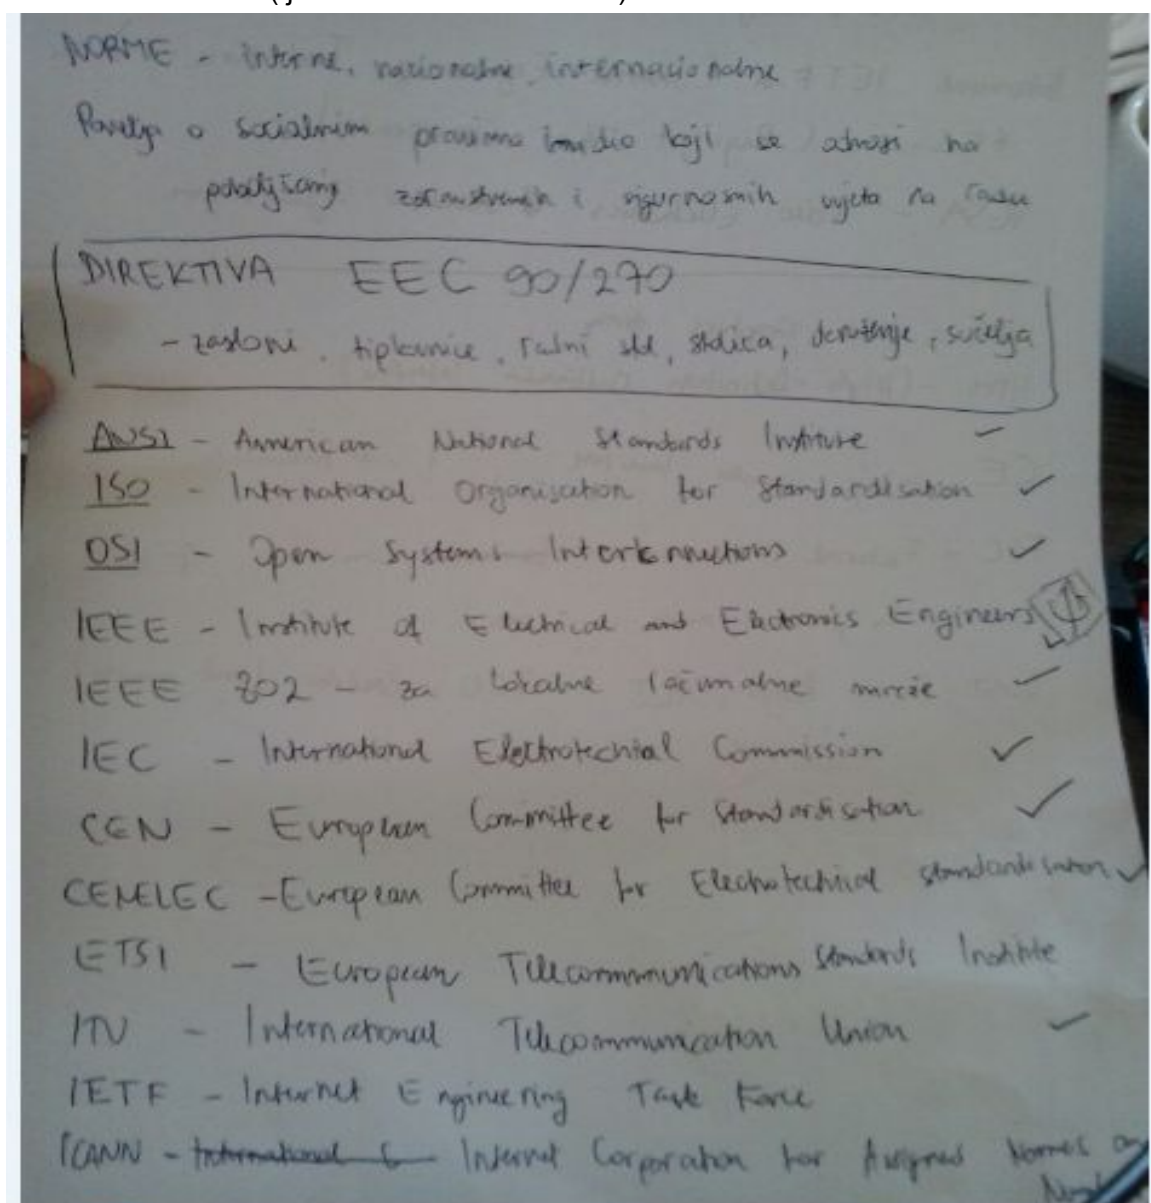 NORME - interne, nacionalne, internacionalne
Povelja o socialnim pravima ima dio koji se odnosi na
poboljšanje zdravstvenih i sigurnosnih uvjeta na radu
DIREKTIVA EEC 90/270
- zasloni, tipkovnice, radni stol, stolica, okruženje, sučelja
ANSI - American National Standards Institute ✓
ISO - International Organisation for Standardisation ✓
OSI - Open Systems Interconnections ✓
IEEE - Institute of Electrical and Electronics Engineers ✓
IEEE 802 - za lokalne računalne mreže ✓
IEC - International Electrotechial Commission ✓
CEN - European Committee for Standardisation ✓
CENELEC - European Committee for Electrotechnical standardisation ✓
ETSI - European Telecommunications Standards Institute
ITU - International Telecommunication Union ✓
IETF - Internet Engineering Task Force
ICANN - International Internet Corporation for Assigned Names